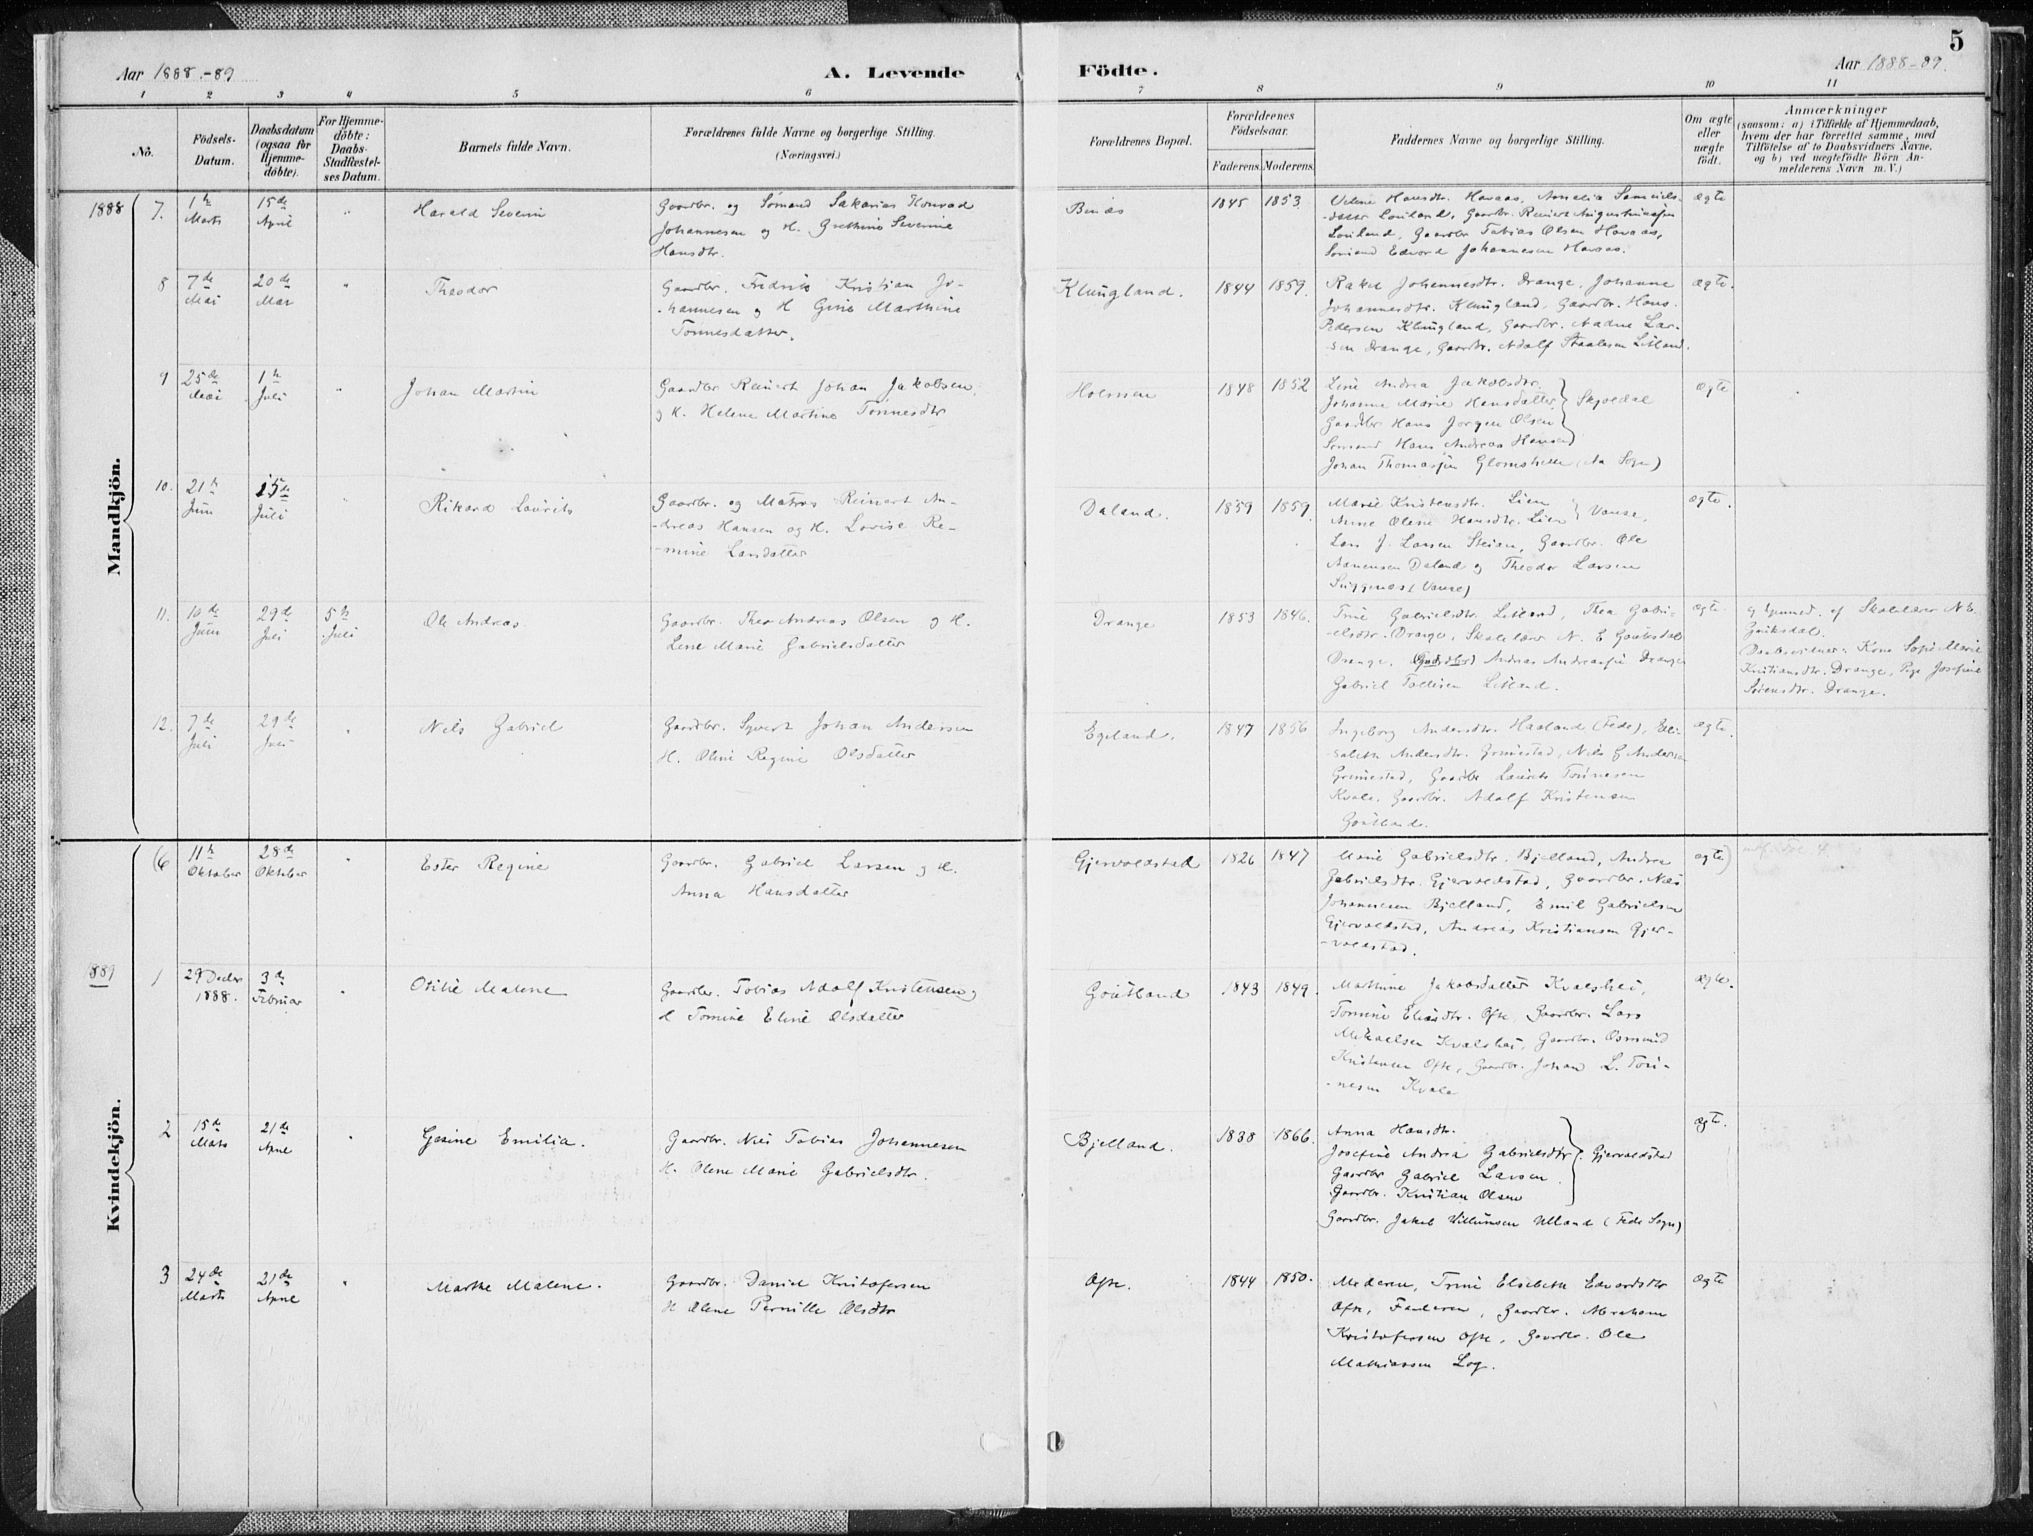 5
Aar 1888-89
A. Levende
Födte.
Aar 1888-89.
1 2 3 4 5 6 7 8 9 10 11
No.
Födsels-
Datum.
Daabsdatum
(ogsaa for
Hjemme-
döbte).
For Hjemme-
döbte:
Daabs-
Stadfæstel-
ses Datum.
Barnets fulde Navn.
Forældrenes fulde Navne og borgerlige Stilling.
(Næringsvei.)
Forældrenes Bopæl.
Forældrenes
Födselsaar.
Faderens. Moderens.
Faddernes Navne og borgerlige Stilling.
Om ægte
eller
uægte
födt.
Anmærkninger
(saasom: a) i Tilfælde af Hjemmedaab,
hvem der har forrettet samme, med
Tilföielse af to Daabsvidners Navne.
og b) ved uægtefödte Börn An-
melderens Navn m. V.)
Mandkjön.
1888
7.
1ste
Marts
15de
April
"
Harald Severin
Gaardbr. og Sømand Sakarias Konrad
Johannesen og H. Grethine Severine
Hansdtr.
1845 1853.
Hansdtr. Havaas, Amalia Samuels-
-datter Louland, Gaardbr. Reinert
Louland, Gaardbr Tobias Olsen Havaas,
Sømand Edvard Johannesen Havaas.
ægte
8
7de
Mai
20de
Mai
"
Theodor
Gaardbr. Fredrik Kristian Jo-
-hannesen og H Gine Marthine
Tønnesdatter.
Klungland.
1844 1859.
Rakel Johannesdtr. Drange, Johanne
Johannesdtr. Klungland, Gaardbr. Hans
Pedersen Klungland, Gaardbr. Aadne Lar-
-sen Drange, Gaardbr. Adolf Staalesen Litland.
ægte.
9
25de
Mai
1ste
Juli
"
Johan Martin
Gaardbr Reinert Johan Jakobsen
og H. Helene Martine Tønnesdtr
Holmen
1848 1852
Line Andrea Jakobsdtr.
Johanne Marie Hansdatter
Gaardbr Hans Jørgen Olsen
Sømand Hans Andreas Hansen
Skjvedal
Johan Thomassen Glomshelle (Aa Sogn)
ægte
10.
21de
Juni
15de
Juli
"
Rikard Lauritz
Gaardbr. og Matros Reinert An-
-dreas Hansen og H. Lovise Re-
-mine Larsdatter
Daland.
1859 1859.
Marie Kristensdtr. Lien
Anne Oline Hansdtr. Lien
Vanse,
Lars J. Larsen Steian, Gaardbr. Ole
Aanensen Daland og Theodor Larsen
(Vanse)
ægte.
11.
10de
Juni
29de
Juli
5te
Juli
Ole Andreas
Gaardbr. Theo Andreas Olsen og H.
Lene Marie Gabrielsdatter
Drange
1853 1846.
Trine Gabrielsdtr. Litland, Thea Gabri-
-elsdtr. Drange, Skolelærer N. E
Drange, Andreas Andreassen Drange
Gabriel Tollisen Litland.
ægte.
af Skolelærer N. E.
Daabsvidner: Kone Sofie Marie
Kristiansdtr. Drange, Pige Josefine
Drange.
12.
7de
Juli
29de
Juli
"
Nils Gabriel
Gaardbr. Syvert Johan Andersen
H. Oline Regine Olsdatter
Egeland.
1847 1856
Ingeborg Andersdtr. Haaland (Fede), Eli-
-sabeth Andersdtr. Grimestad, Nils G Andersen
Grimestad, Gaardbr Laurits Tønnesen
Kvale, Gaardbr. Adolf Kristensen
Gøutland.
ægte.
Kvindekjön.
(6
11te
Oktober
28de
Oktober
"
Ester Regine
Gaardbr. Gabriel Larsen og H.
Anna Hansdatter
Gjervoldstad
1826 1847
Marie Gabrielsdtr. Bjelland, Andrea
Gabrielsdtr. Gjervoldstad, Gaardbr. Nils
Johannesen Bjelland, Emil Gabrielsen
Gjervoldstad, Andreas Kristiansen Gjer-
-voldstad.
ægte)
1889
1
29 Decbr
1888.
3de
Februar
"
Otilie Malene
Gaardbr. Tobias Adolf Kristensen og
H Tomine Eline Olsdatter
Gøutland
1843 1849.
Mathine Jakobsdatter Kvalshei,
Tomine Eliasdtr. Ofte, Gaardbr. Lars
Mikaelsen Kvalshei, Gaardbr. Osmund
Kristensen Ofte, Gaardbr. Johan L. Tøn-
-nesen Kvale
ægte.
2
15de
Marts
21de
April
"
Gesine Emilia.
Gaardbr. Nils Tobias Johannesen
H. Olene Marie Gabrielsdtr.
Bjelland.
1838 1866.
Anna Hansdtr.
Josefine Andrea Gabrielsdtr
Gaardbr Gabriel Larsen
Gaardbr. Kristian Olsen
Gjervoldstad
Gaardbr. Jakob Willumsen Ulland (Fede Sogn)
ægte.
3
24de
Marts
21de
April
"
Marthe Malene.
Gaardbr. Daniel Kristofersen
H Olene Pernille Olsdtr
Ofte.
1844 1850.
Moderen, Trine Elisbeth Edvardsdtr
Ofte, Faderen, Gaardbr. Abraham
Kristofersen Ofte, Gaardbr. Ole
Mathiassen Log.
ægte